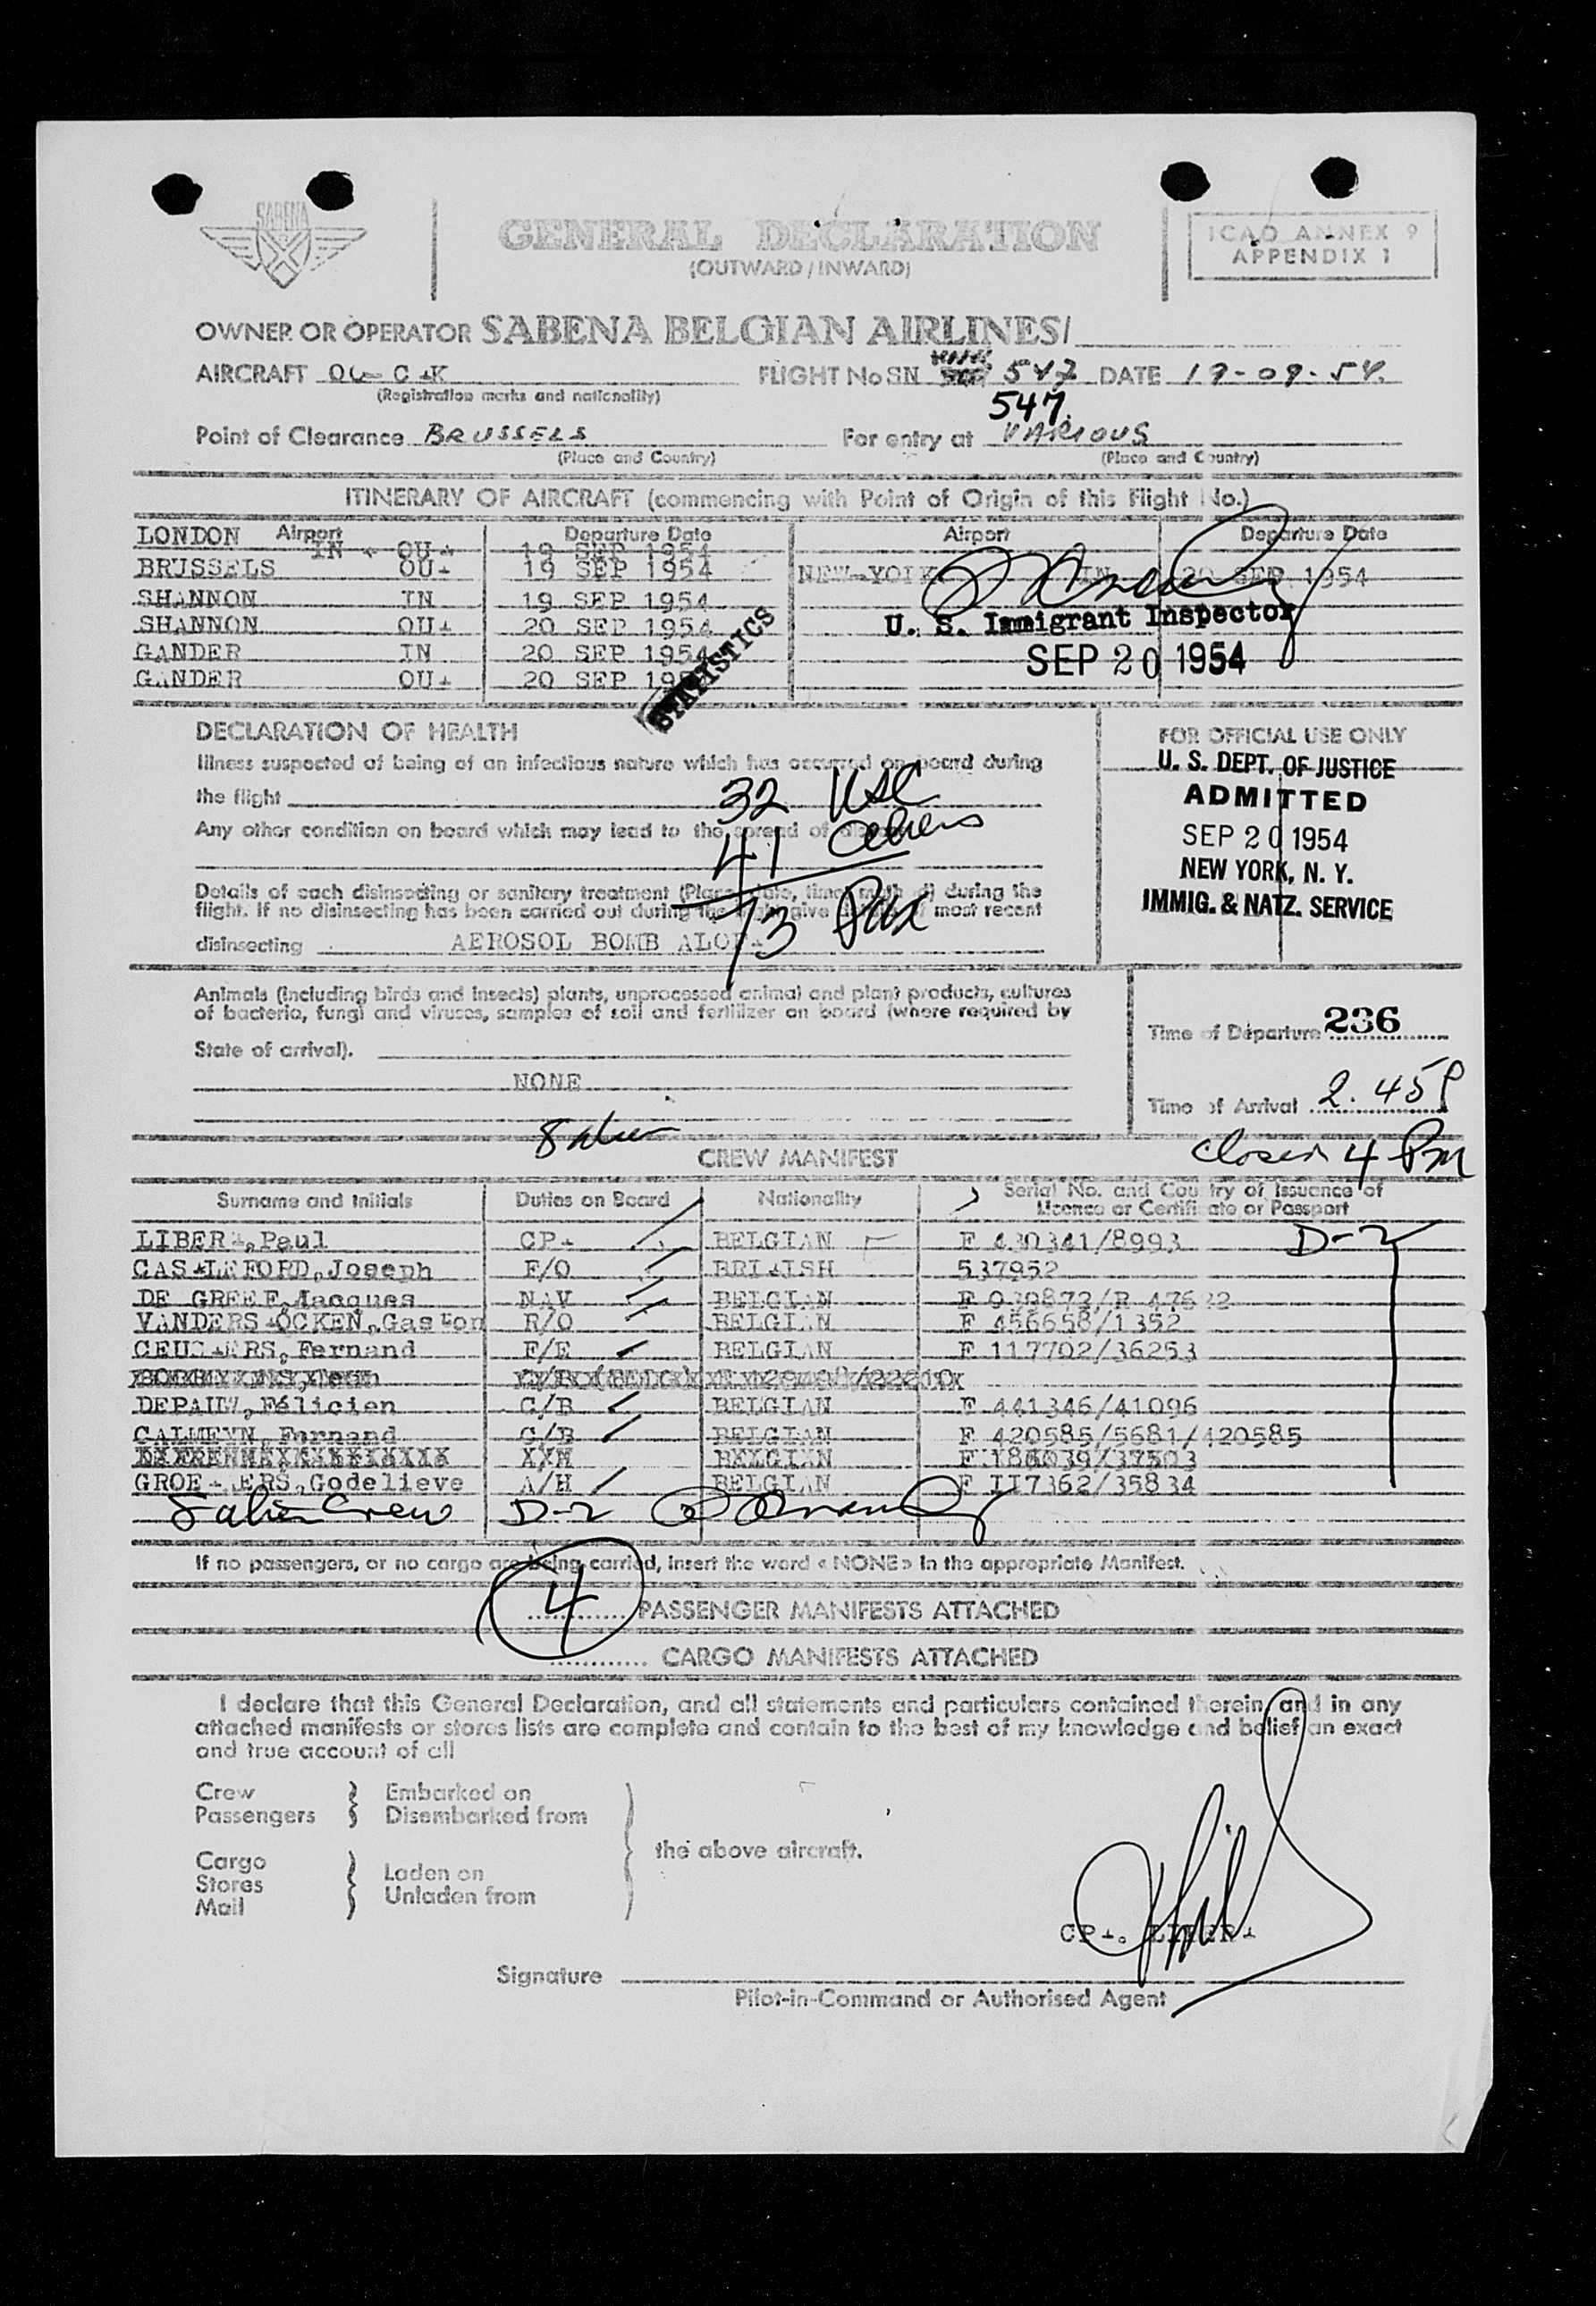 SABENA
GENERAL DECLARATION
(OUTWARD / INWARD)
ICAO ANNEX 9
APPENDIX 1
OWNER OR OPERATOR SABENA BELGIAN AIRLINES/
AIRCRAFT
FLIGHT No SN 547 DATE 19-09-54.
(Registration marks and nationality)
547.
Point of Clearance BRUSSELS For entry at VARIOUS
(Place and Country) (Place and Country)
ITINERARY OF AIRCRAFT (commencing with Point of Origin of this Flight No.)
Airport Departure Date Airport Departure Date
LONDON 19 SEP 1954
BRUSSELS OUT 19 SEP 1954 NEW-YORK IN 20 SEP 1954
SHANNON IN 19 SEP 1954
SHANNON OUT 20 SEP 1954
GANDER IN 20 SEP 1954
GANDER OUT 20 SEP 19
STATISTICS
U. S. Immigrant Inspector
SEP 20 1954
DECLARATION OF HEALTH
Illness suspected of being of an infectious nature which has occurred on board during
the flight
32 USC
Any other condition on board which may lead to the spread of
41 aliens
Details of each disinsecting or sanitary treatment (Place, date, time, method) during the
flight. If no disinsecting has been carried out during the flight give details of most recent
73 Pax
disinsecting AEROSOL BOMB
FOR OFFICIAL USE ONLY
U. S. DEPT. OF JUSTICE
ADMITTED
SEP 20 1954
NEW YORK, N. Y.
IMMIG. & NATZ. SERVICE
Animals (including birds and insects) plants, unprocessed animal and plant products, cultures
of bacteria, fungi and viruses, samples of soil and fertilizer on board (where required by
State of arrival).
NONE
Time of Departure 236
Time of Arrival 2.45P
Closed 4 Pm
8 alien
CREW MANIFEST
Surname and Initials Duties on Board Nationality Serial No. and Country of Issuance of
Licence or Certificate or Passport
LIBERT, Paul CPT BELGIAN F 430341/8993 D-2
CASTLEFORD, Joseph F/O BRITISH 537952
DE GREEF, Jacques NAV BELGIAN
VANDERSTOCKEN, Gaston R/O BELGIAN F 456658/1352
CEULAERS, Fernand F/E BELGIAN F 117702/36253
DEPAUW, Félicien C/B BELGIAN F 441346/41096
CALMEYN, Fernand C/B BELGIAN F 420585/5681/420585
Godelieve A/H BELGIAN F II7362/35834
8 alien Crew D-2
If no passengers, or no cargo are being carried, insert the word « NONE » in the appropriate Manifest.
4 PASSENGER MANIFESTS ATTACHED
CARGO MANIFESTS ATTACHED
I declare that this General Declaration, and all statements and particulars contained therein, and in any
attached manifests or stores lists are complete and contain to the best of my knowledge and belief an exact
and true account of all
Crew Embarked on
Passengers Disembarked from
the above aircraft.
Cargo Laden on
Stores Unladen from
Mail
CPT. LIBERT
Signature
Pilot-in-Command or Authorised Agent